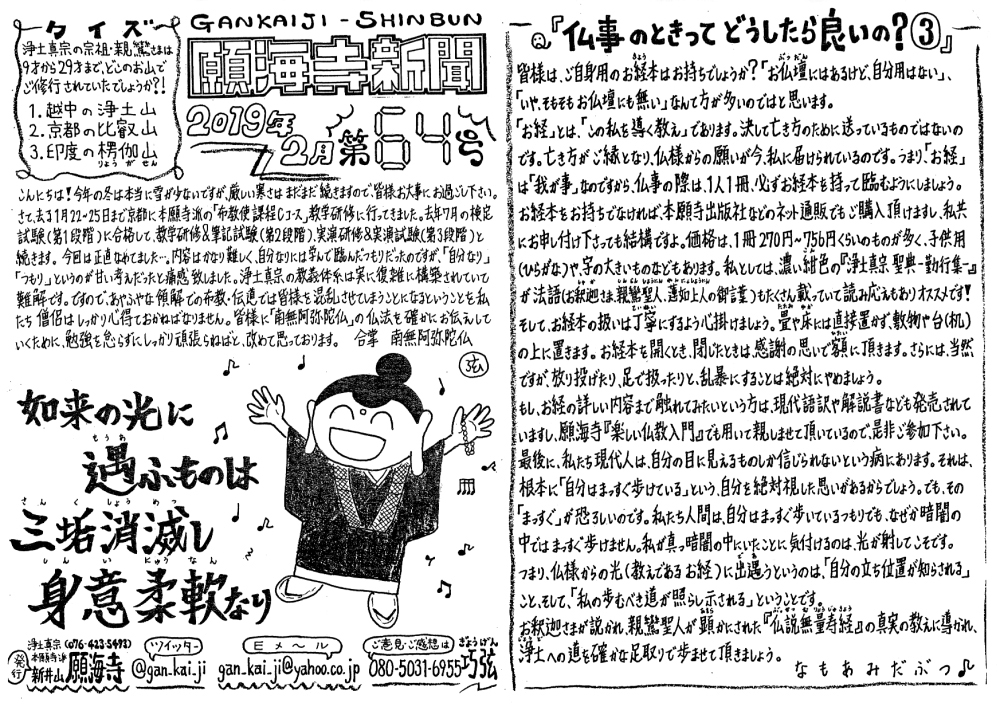 クイズ
浄土真宗の宗祖・親鸞さまは
9才から29才まで、どこのお山で
ご修行されていたでしょうか?!
1.越中の浄土山
2.京都の比叡山
3.印度の楞伽山
りょうがせん
GANKAIJI-SHINBUN
願海寺新聞
2019年
2月第64号
こんにちは!今年の冬は本当に雪が少ないですが、厳しい寒さはまだまだ続きますので、皆様お大事にお過ごし下さい。
さて、去る1月22~25日まで京都に本願寺派の「布教使課程Cコース」教学研修に行ってきました。去年7月の検定
試験(第1段階)に合格して、教学研修&筆記試験(第2段階)、実演研修&実演試験(第3段階)と
続きます。今回は正直なめてました…。内容はかなり難しく、自分なりには学んで臨んだつもりだったのですが、「自分なり」
「つもり」というのが甘い考えだったと痛感致しました。浄土真宗の教義体系は実に複雑に構築されていて
難解です。ですので、あやふやな領解での布教・伝道では皆様を混乱させてしまうことになるということを私
たち僧侶はしっかり心得ておかねばなりません。皆様に「南無阿弥陀仏」の仏法を確かにお伝えして
いくために、勉強を怠らずにしっかり頑張らねばと、改めて思っております。 合掌 南無阿弥陀仏
弦
如来の光に
もうあ
遇ふものは
さんくしょうめつ
三垢消滅し
しんいにゅうなん
身意柔軟なり
発行
浄土真宗(076-423-5492)
本願寺派
新井山 願海寺
ツイッター
@gan_kai_ji
Eメール
gan_kai_ji@yahoo.co.jp
ご意見・ご感想は
080-5031-6955
ぎょうげん
巧弦
Q『仏事のときってどうしたら良いの?③』
皆様は、ご自身用のお経本はお持ちでしょうか?「お仏壇にはあるけど、自分用はない」、
「いや、そもそもお仏壇も無い」なんて方が多いのではと思います。
「お経」とは、「この私を導く教え」であります。決して亡き方のために送っているものではないの
です。亡き方がご縁となり、仏様からの願いが今、私に届けられているのです。つまり「お経」
は「我が事」なのですから、仏事の際は、1人1冊、必ずお経本を持って臨むようにしましょう。
お経本をお持ちでなければ、本願寺出版社などのネット通販でもご購入頂けますし、私共
にお申し付け下さっても結構ですよ。価格は、1冊270円~756円くらいのものが多く、子供用
(ひらがな)や、字の大きいものなどもあります。私としては、濃い紺色の『浄土真宗 聖典-勤行集-』
が法語(お釈迦さま、親鸞聖人、蓮如上人の御言葉)もたくさん載っていて読み応えもありオススメです!
そして、お経本の扱いは丁寧にするよう心掛けましょう。畳や床には直接置かず、敷物や台(机)
の上に置きます。お経本を開くとき、閉じたときは、感謝の思いで額に頂きます。さらには、当然
ですが、放り投げたり、足で扱ったりと、乱暴にすることは絶対にやめましょう。
もし、お経の詳しい内容まで触れてみたいという方は、現代語訳や解説書なども発売されて
いますし、願海寺『楽しい仏教入門』でも用いて親しませて頂いているので、是非ご参加下さい。
最後に、私たち現代人は、自分の目に見えるものしか信じられないという病にあります。それは、
根本に「自分はまっすぐ歩けている」という、自分を絶対視した思いがあるからでしょう。でも、その
「まっすぐ」が恐ろしいのです。私たち人間は、自分はまっすぐ歩いているつもりでも、なぜか暗闇の
中ではまっすぐ歩けません。私が真っ暗闇の中にいたことに気付けるのは、光が射してこそです。
つまり、仏様からの光(教えであるお経)に出遇うというのは、「自分の立ち位置が知らされる」
こと、そして、「私の歩むべき道が照らし示される」ということです。
お釈迦さまが説かれ、親鸞聖人が顕かにされた『仏説無量寿経』の真実の教えに導かれ、
浄土への道を確かな足取りで歩ませて頂きましょう。
なもあみだぶつ♪